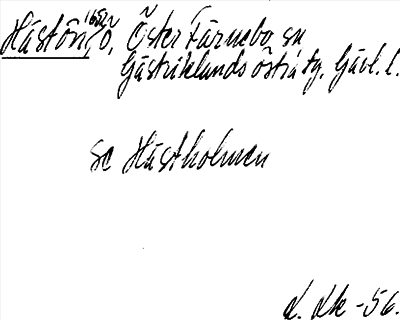 Hästön, ö, Öster Färnebo sn
Gästriklands östra tg, Gävl. l.
se Hästholmen